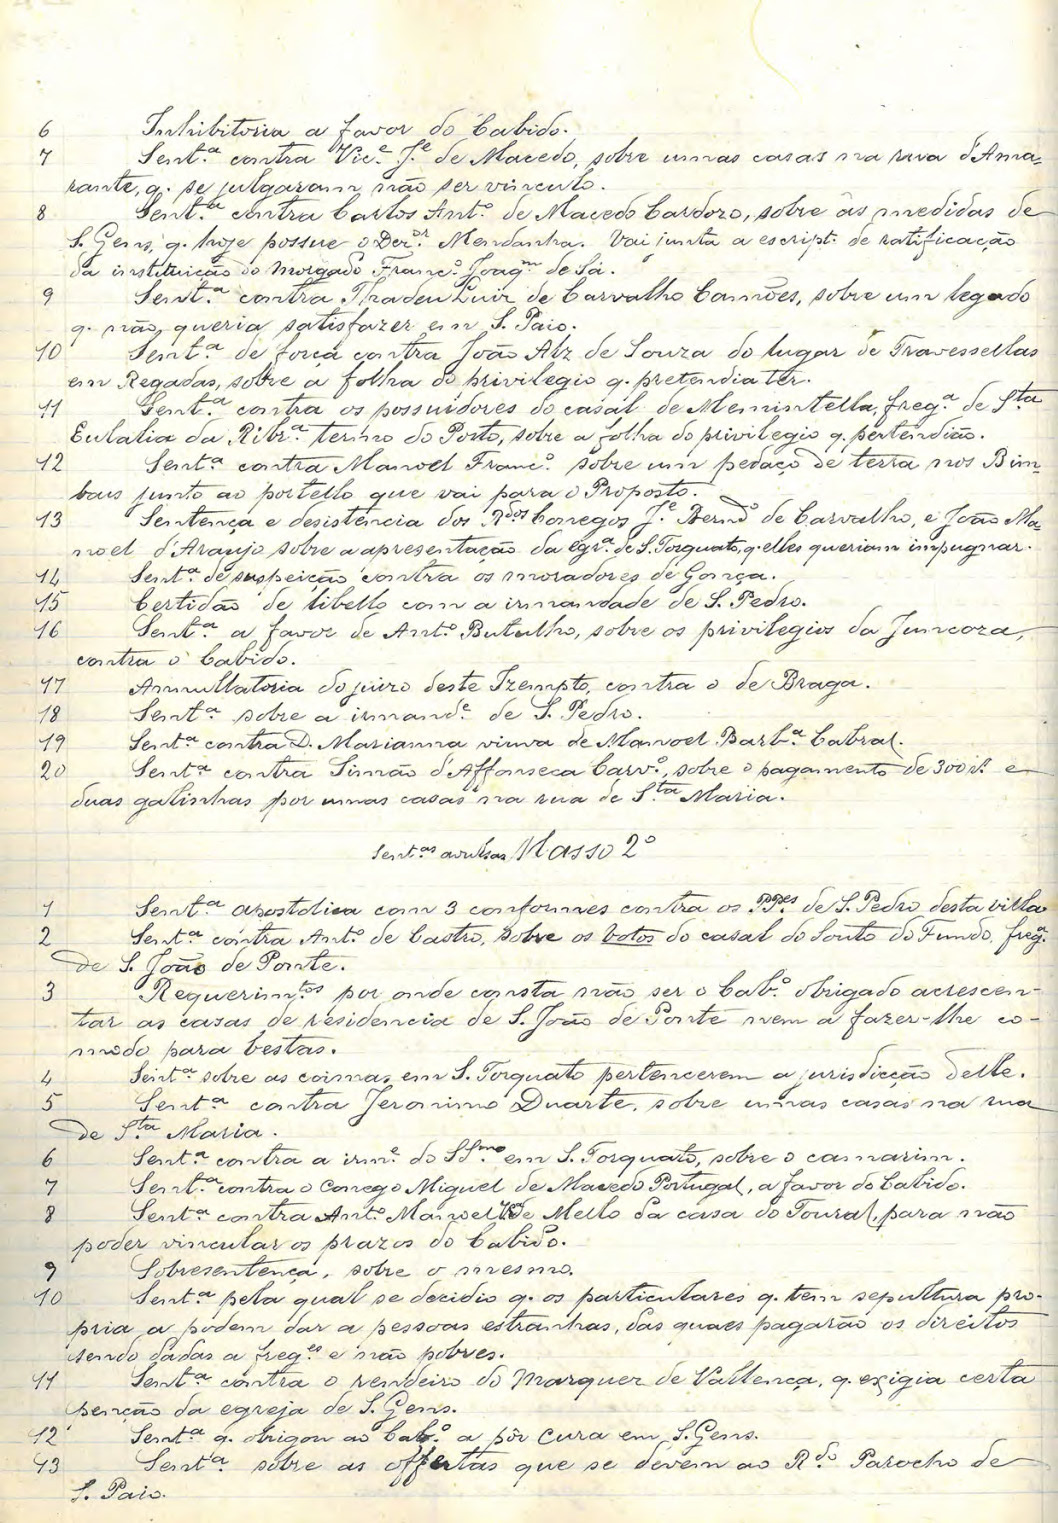 6 Inhibitoria a favor do Cabido.
7 Sent.ª contra Vic.e J.e de Macedo, sobre umas casas na rua d'Ama-
rante, q. se julgaram não ser vinculo.
8 Sent.ª contra Carlos Ant.º de Macedo Cardozo, sobre as medidas de
S. Gens, q. hoje possue o Dez.or Mendanha. Vai junta a escript. de ratificação
da instituição do Morgado Franc.º Joaq.m de Sá.
9 Sent.ª contra Thadeu Luiz de Carvalho Camões, sobre um legado
q. não queria satisfazer em S. Paio.
10 Sent.ª de força contra João Alz de Souza do lugar de Travessellas
em Regadas, sobre a folha do privilegio q. pretendia ter.
11 Sent.ª contra os possuidores do casal de Memintella, freg.ª de S.ta
Eulalia da Ribr.ª termo do Porto, sobre a folha do privilegio q. pertendião.
12 Sent.ª contra Manoel Franc.º sobre um pedaço de terra nos Bim-
bais junto ao portello que vai para o Proposto.
13 Sentença e desistencia dos R.dos Conegos J.e Bern.do de Carvalho, e João Ma-
noel d'Araujo sobre a apresentação da egr.ª de S. Torquato, q. elles queriam impugnar.
14 Sent.ª de suspeição contra os moradores de Gonça.
15 Certidão de libello com a irmandade de S. Pedro.
16 Sent.ª a favor de Ant.º Butulho, sobre os privilegios da Juncoza,
contra o Cabido.
17 Annullatoria do juizo deste Izempto, contra o de Braga.
18 Sent.ª sobre a irmand.e de S. Pedro.
19 Sent.ª contra D. Marianna viuva de Manoel Barb.ª Cabral.
20 Sent.ª contra Simão d'Affonseca Carv.º, sobre o pagamento de 300 r.s e
duas galinhas por umas casas na rua de S.ta Maria.
Sent.as avulsas, Masso 2º
1 Sent.ª apostolica com 3 conformes contra os PP.es de S. Pedro desta villa
2 Sent.ª contra Ant.º de Castro, sobre os votos do casal do Souto do Fundo, freg.ª
de S. João de Ponte.
3 Requerim.tos por onde consta não ser o Cab.º obrigado acrescen-
tar as casas de residencia de S. João de Ponte nem a fazer-lhe co-
modo para bestas.
4 Sent.ª sobre as coimas em S. Torquato pertencerem a jurisdicção delle.
5 Sent.ª contra Jeronimo Duarte, sobre umas casas na rua
de S.ta Maria.
6 Sent.ª contra a irm.e do SS.mo em S. Torquato, sobre o camarim.
7 Sent.ª contra o Conego Miguel de Macedo Portugal, a favor do Cabido.
8 Sent.ª contra Ant.º Manoel de Mello da casa do Toural, para não
poder vincular os prazos do Cabido.
9 Sobresentença, sobre o mesmo.
10 Sent.ª pela qual se decidio q. os particulares q. tem sepultura pro-
pria a podem dar a pessoas estranhas, das quaes pagarão os direitos
sendo dadas a freg.es e não pobres.
11 Sent.ª contra o rendeiro do Marquez de Vallença, q. exigia certa
penção da egreja de S. Gens.
12 Sent.ª q. obrigou ao Cab.º a pôr cura em S. Gens.
13 Sent.ª sobre as offertas que se devem ao R.do Parocho de
S. Paio.